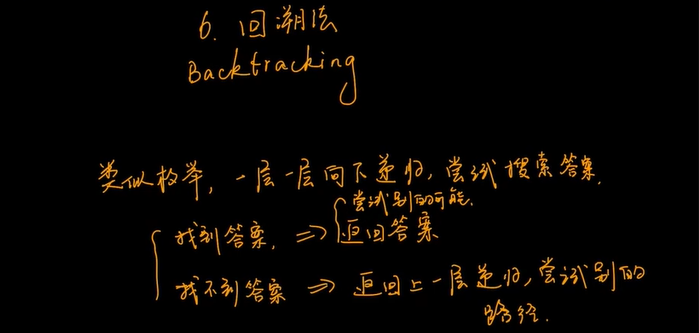 6. 回溯法
Backtracking
类似枚举,一层一层向下递归,尝试搜索答案.
尝试别的可能.
找到答案, => 返回答案
找不到答案 => 返回上一层递归,尝试别的
路径.